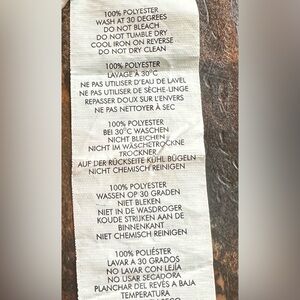 100% POLYESTER
WASH AT 30 DEGREES
DO NOT BLEACH
DO NOT TUMBLE DRY
COOL IRON ON REVERSE
DO NOT DRY CLEAN
100% POLYESTER
LAVAGE A 30°C
NE PAS UTILISER D'EAU DE LAVEL
NE PAS UTILISER DE SÈCHE-LINGE
REPASSER DOUX SUR L'ENVERS
NE PAS NETTOYER À SEC
100% POLYESTER
BEI 30°C WASCHEN
NICHT BLEICHEN
NICHT IM WÄSCHETROCKNE
TROCKNER
AUF DER RÜCKSEITE KÜHL BÜGELN
NICHT CHEMISCH REINIGEN
100% POLYESTER
WASSEN OP 30 GRADEN
NIET BLEKEN
NIET IN DE WASDROGER
KOUDE STRIJKEN AAN DE
BINNENKANT
NIET CHEMISCH REINIGEN
100% POLIÉSTER
LAVAR A 30 GRADOS
NO LAVAR CON LEJÍA
NO USAR SECADORA
PLANCHAR DEL REVÉS A BAJA
TEMPERATURA